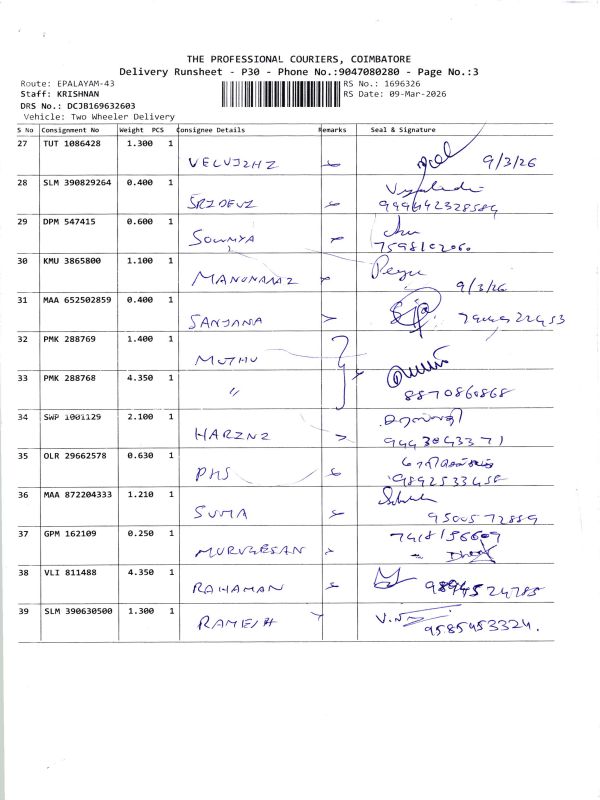 THE PROFESSIONAL COURIERS, COIMBATORE
Delivery Runsheet - P30 - Phone No.:9047080280 - Page No.:3
Route: EPALAYAM-43 RS No.: 1696326
Staff: KRISHNAN RS Date: 09-Mar-2026
DRS No.: DCJB169632603
Vehicle: Two Wheeler Delivery
S No Consignment No Weight PCS Consignee Details Remarks Seal & Signature
27 TUT 1086428 1.300 1 9/3/26
28 SLM 390829264 0.400 1 SRIDEVI
29 DPM 547415 0.600 1 SOUMYA
30 KMU 3865800 1.100 1 9/3/26
31 MAA 652502859 0.400 1 SANJANA
32 PMK 288769 1.400 1 MUTHU
33 PMK 288768 4.350 1 〃 8870860868
34 SWP 1001129 2.100 1 HARINI 9443043371
35 OLR 29662578 0.630 1 PMS
36 MAA 872204333 1.210 1 SUMA 9500572889
37 GPM 162109 0.250 1 MURUGESAN
38 VLI 811488 4.350 1 RAHAMAN 9894524785
39 SLM 390630500 1.300 1 RAMESH 9585453324.